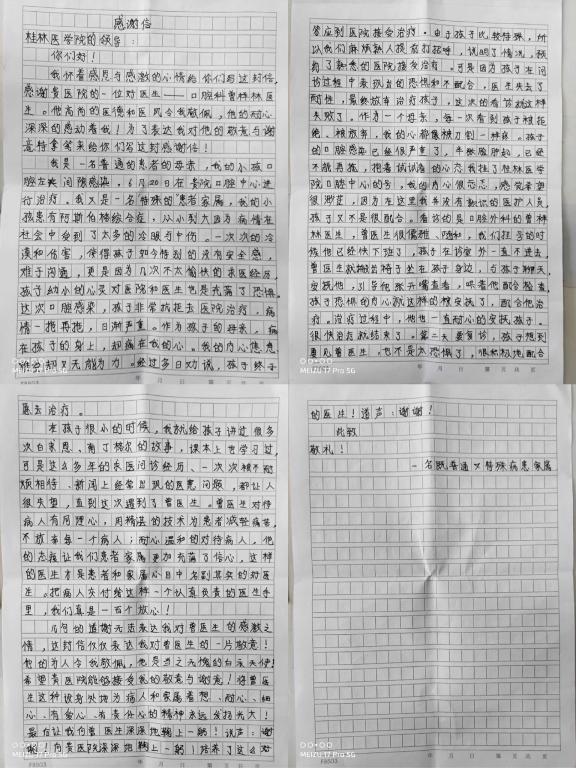 感谢信
桂林医学院的领导：
你们好！
我怀着感恩与感激的心情给你们写这封信，
感谢贵医院的一位对医生——口腔科曾桂林医
生。他高尚的医德和医风令我敬佩，他的耐心
深深的感动着我！为了表达我对他的敬意与谢
意特拿笔来给你们写这封感谢信！
我是一名普通的患者的母亲，我的小孩口
腔左夹间隙感染，6月20日在贵院口腔中心进
行治疗。我又是一名特殊的患者家属，我的小
孩患有阿斯伯格综合症，从小到大因为病情在
社会中受到了太多的冷眼与中伤。一次次的冷
漠和伤害，使得孩子如今特别的没有安全感，
难于沟通，更是因为几次不太愉快的求医经历，
孩子幼小的心灵对医院和医生也是充满了恐惧。
这次口腔感染，孩子非常抗拒去医院治疗，病
情一拖再拖，日渐严重。作为孩子的母亲，病
在孩子的身上，却痛在我的心。我的内心焦急
难安却又无能为力。经过多日劝说，孩子终于
F8503
年 月 日 第 页 共 页
MEIZU 17 Pro 5G
答应到医院接受治疗。由于孩子比较特殊，所
以我们麻烦熟人提前打招呼，说明了情况，预
约了熟悉的医院接受治疗。可是因为孩子在问
诊过程中表现出的恐惧和不配合，医生失去了
耐性，最终放弃治疗孩子，这次的看诊就这样
失败了。作为一个母亲，每一次看到孩子被拒
绝、被放弃，我的心都像被刀割一样疼。孩子
的口腔感染已经很严重了，半张脸肿起，已经
不能再拖，抱着试试看的心态我挂了桂林医学
院口腔中心的号，我的内心很忐忑，感觉希望
很渺茫，因为在这里我并没有熟识的医护人员，
孩子又不是很配合。看诊的是口腔外科的曾桂
林医生，曾医生很儒雅、随和，我们挂号的时
候他已经快下班了，孩子在诊室外一直不进去，
曾医生就搬出椅子坐在孩子身边，与孩子聊天，
安抚他，引导他张开嘴查看，哄着他配合检查，
孩子恐惧的内心就这样的被安抚了，配合他治
疗。治疗过程中，他也一直耐心的安抚孩子。
很快治疗就结束了。第二天要复诊，孩子想到
要见曾医生，也不要太恐惧了，很积极地配合
年 月 日 第 页 共 页
MEIZU 17 Pro 5G
愿去治疗。
在孩子很小的时候，我就给孩子讲过很多
次白求恩、南丁格尔的故事，课本上也学习过，
可是这么多年的求医问诊经历、一次次被不耐
烦相待、新闻上经常出现的医患问题，都让人
很失望，直到这次遇到了曾医生。曾医生对待
病人有同理心，用精湛的技术为患者减轻病苦，
不放弃每一个病人；耐心温和的对待病人，他
的态度让我们患者家属更加充满了信心，这样
的医生才是患者和家属心目中名副其实的好医
生。把病人交付给这样一个认真负责的医生手
里，我们真是一百个放心！
几句的道谢无法表达我对曾医生的感激之
情，这封信仅仅表达我对曾医生的一片敬意！
他的为人令我敬佩，他是当之无愧的白衣天使！
希望贵医院能够接受我的敬意与谢意！将曾医
生这种设身处地为病人和家属着想、耐心、细
心、有爱心、有责任心的精神永远发扬光大！
最后让我向曾医生深深地鞠上一躬！说声：谢
谢！向贵医院深深地鞠上一躬！培养了这么好
F8503
年 月 日 第 页 共 页
MEIZU 17 Pro 5G
的医生！道声：谢谢！
此致
敬礼！
一名既普通又特殊病患家属
F8503
年 月 日 第 页 共 页
MEIZU 17 Pro 5G